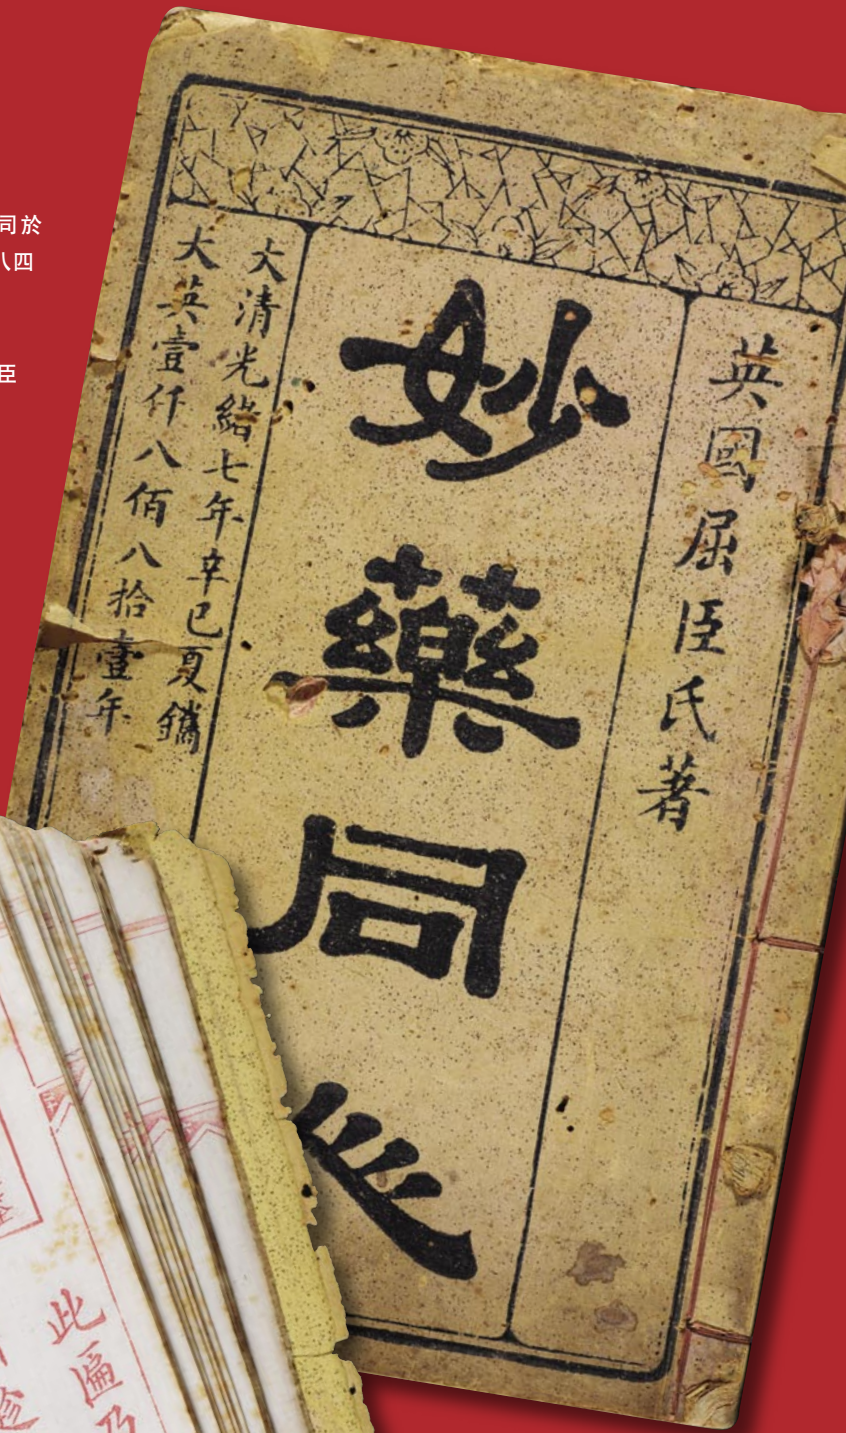 司於
八四
臣
英國屈臣氏著
妙藥同巡
大清光緒七年辛巳夏鐫
大英壹仟八佰八拾壹年
此遍乃